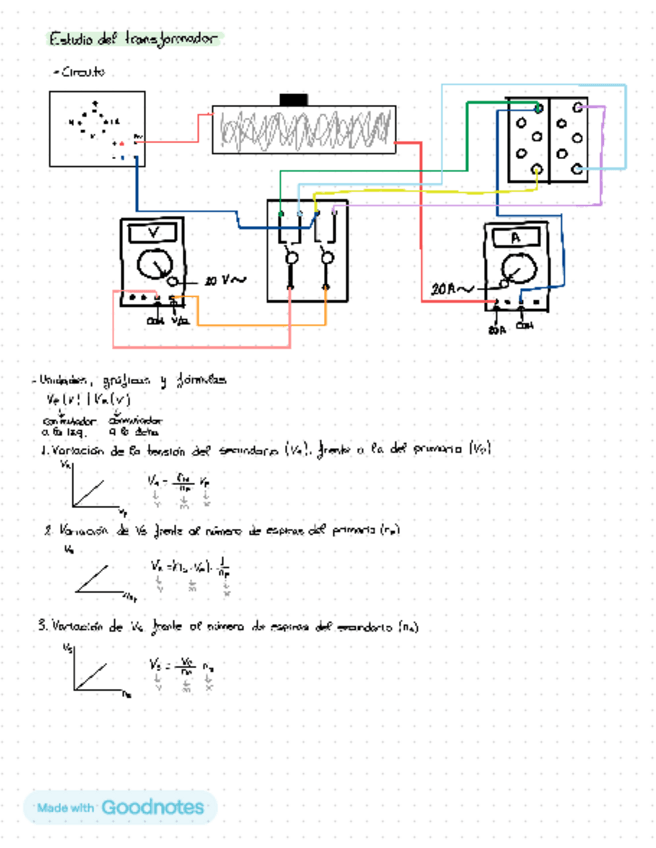 Estudio del transformador
- Circuito
V
A
20 V~
20A~
COM V/Ω
20A COM
- Unidades, gráficas y fórmulas
Vp (V) | Vs (V)
conmutador conmutador
a la izq. a la dcha
1. Variación de la tensión del secundario (Vs), frente a la del primario (Vp)
Vs
Vs = ns/np Vp
y m x
Vp
2. Variación de Vs frente al número de espiras del primario (np)
Vs
Vs = (ns · Vp) · 1/np
y m x
1/np
3. Variación de Vs frente al número de espiras del secundario (ns)
Vs
Vs = Vp/np ns
y m x
ns
Made with Goodnotes